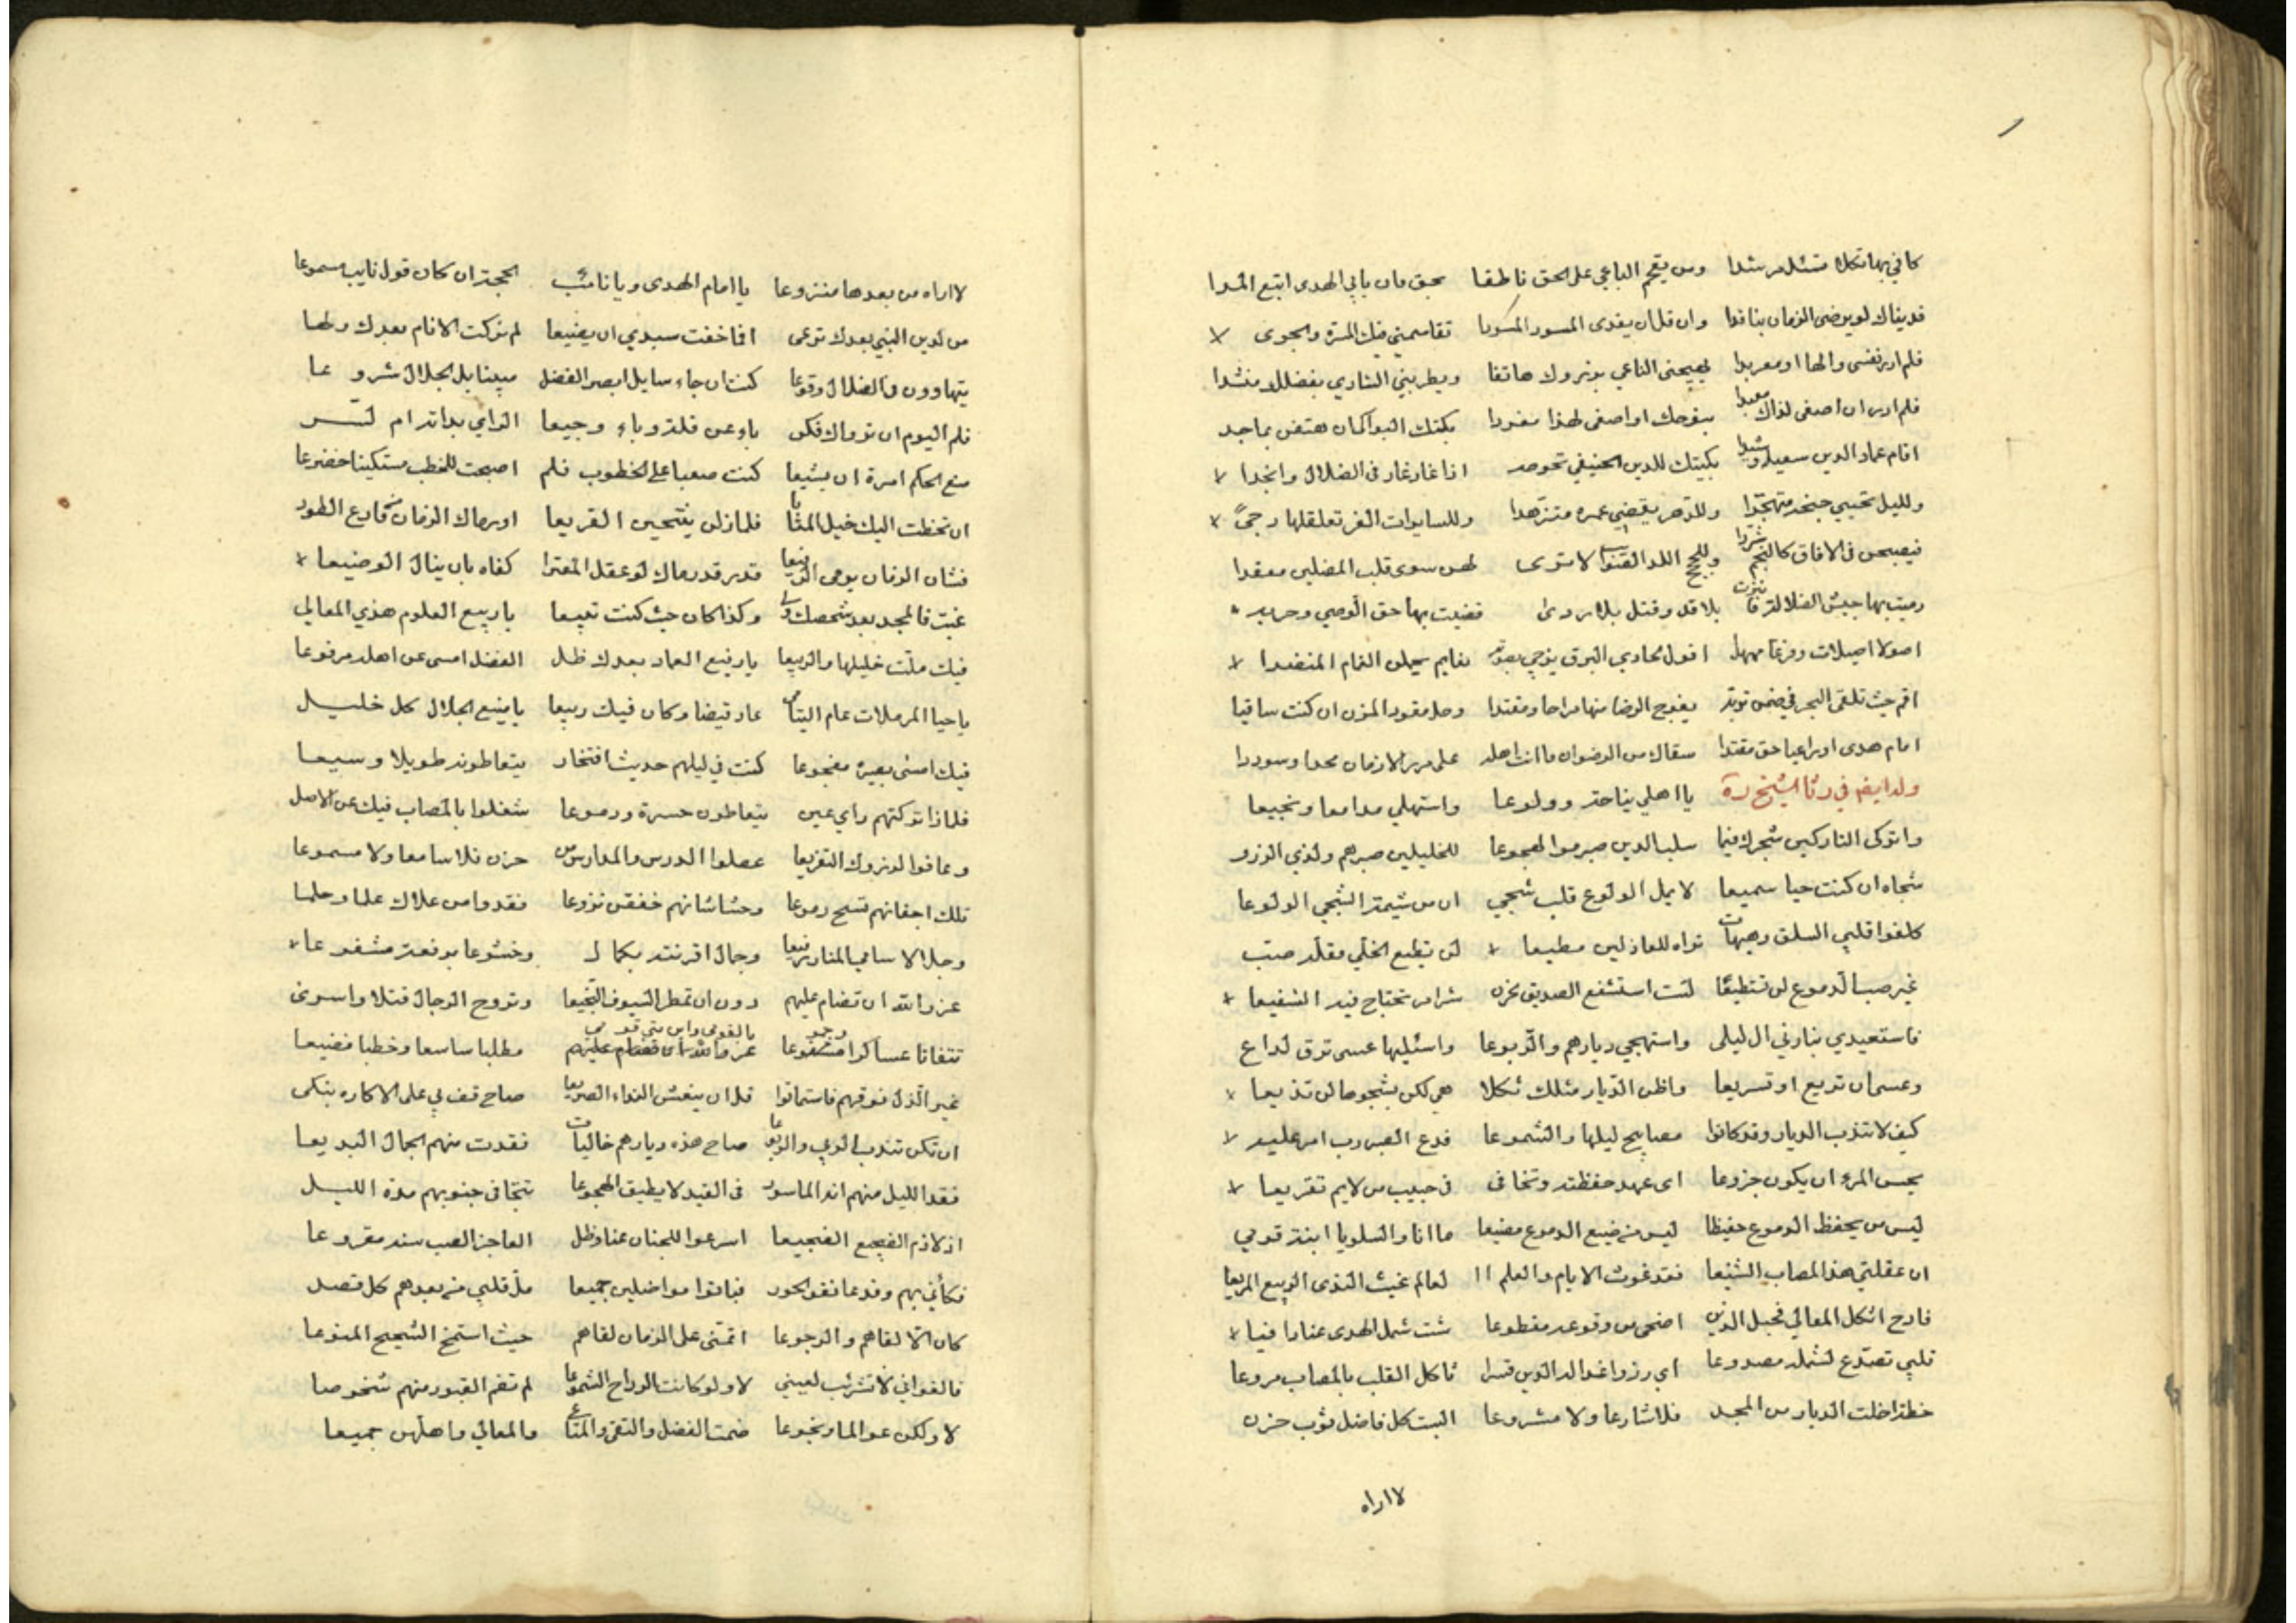 كافي بها تكلا مرشدا ومن يقحم الباغي على الحق ناطقا بحق ومن يابي الهدى اتبع المدا
فديناك لو يرضى الزمان بنا فدا وان قل ان يفدى المسود المسودا تقاسمني فيك المسرة والجوى
فلم ادر نفسي والها او معربدا يهيجني الناعي بونروك هاتفا ويطربني الشادي بفضلك منشدا
فلم ادر ان اصغى لذاك معددا بنوحك او اصغى لهذا مغردا بكتك البواكي ان هتفن بماجد
اقام عماد الدين سعيا وشيدا بكيتك للدين الحنيفي تحوطه اذا غار غار في الضلال وانجدا
ولليل تحيي جنحه متهجدا وللدهر يقضي عمره متزهدا وللسايرات الغر تعلقها دجى
فيصبحن في الافاق كالنجم شردا وللحجج اللد القنا لا ترى لهن سوى قلب المضلين مغمدا
رميت بها جيش الضلالة بلا قد وقتل بلا ردى قضيت بها حق الوصي
اصولا اصيلات وفرعا ممهدا اقول لحادي البرق يزجي بصوته نعايم يحملن الغمام المنضدا
اقم حيث تلقى البحر في ضمن تربة يفوح الرضا منها مراحا ومغتدا وحل عقود المزن ان كنت ساقيا
امام هدى او راعيا حق مقتدا سقاك من الرضوان ما انت اهله على مر الازمان مجدا وسوددا
وله ايضا في رثا الشيخ ره يا اهلي بنا حنة وولوعا واستهلي مدامعا ونجيعا
واتركي التاركين شجوك فينا سلب الدين صبر موا لهجوعا للخليلين صبرهم ولذي الرزء
شجاه ان كنت حيا سميعا لا يمل الولوع قلب شجي ان من شيمة الشجي الولوعا
كلفوا قلبي السلو وهيهات تراه للعاذلين مطيعا لن يطيع الخلي مقلة صب
غير صب الدموع لن تستطيعا لست استشفع الصديق بحزن شرامر تحتاج فيه الشفيعا
فاستعيدي بنا رني ال ليلى واستهجي ديارهم والربوعا واسئليها عسى ترق لداع
وعسى ان تريع او تسريعا واظن الديار مثلك ثكلا هي لكن بشجوها لن تذيعا
كيف لا تندب الديار وقد كانوا مصابيح ليلها والشموعا فدع الصبر رب امر عليه
يحسن المرء ان يكون جزوعا اي عهد حفظته وتخافى في حبيب من لايم تقريعا
ليس من يحفظ الدموع حفيظا ليس من ضيع الدموع مضيعا ما انا والسلو يا ابنة قومي
ان عقلتي هذا المصاب الشنيعا فقد غوث الايام والعلم ال لعالم غيث الندى الربيع المريعا
فادح اثكل المعالي فحبل الدين اضحى من وقوعه مقطوعا شت شمل الهدى عنادا فيا
قلبي تصدع لشمله مصدوعا اي رزو اغوا له الدين قسرا ثاكل القلب بالمصاب مروعا
خطة اخلت الديار من المجد فلا شارعا ولا مشروعا البست كل فاضل ثوب حزن
لا اراه
لا اراه من بعدها منزوعا يا امام الهدى ويا نائب الحجة ان كان قول نايب مسموعا
من لدين النبي بعدك ترعى افما خفت سيدي ان يضيعا لم تركت الانام بعدك
يتهاوون في الضلال وقوعا كنت ان جاء سايل ابصر الفضل مبينا بل الجلال شروعا
فلم اليوم ان تراك فكن باء عن قلة وباء وجيعا الراي بدا ام لتسر
منع الحكم امرة ان يشيعا كنت صعبا على الخطوب فلم اصبحت للخطب مستكينا خضوعا
ان تخطت اليك خيل المنايا فلما زلن ينتحين القريعا او رماك الزمان من قارع الطود
فشان الزمان يرمي الرفيعا قد رماك لو عقل المقدار كفاه بان ينال الوضيعا
غبت فالمجد بعد شخصك ولى وكذا كان حيث كنت تبيعا يا ربيع العلوم هذي المعالي
فيك ملت خليلها والربيعا يا رفيع العماد بعدك ظل الفضل امسى عن اهله مرفوعا
يا حيا المرملات عام اليتامى عاد قيضا وكان فيك ربيعا يا منيع الجلال كل خليل
فيك امسى بصبره مفجوعا كنت في ليلهم حديث افتخار يتعاطونه طويلا وسيعا
فلماذا تركتهم راي عين يتعاطون حسرة ودموعا شغلوا بالمصاب فيك عن الاهل
وعافوا لرزوك التفريعا عطلوا الدرس والمدارس من حزن فلا سامعا ولا مسموعا
تلك اجفانهم تسح دموعا وحشاشاتهم خفقن نزوعا فقدوا من علاك علما وحلما
وجلالا ساميا لمنار رفيعا وجمال اقرنته بكمال وخشوعا برفعة مشفوعا
عز والله ان تضام عليهم دون ان تمطر السيوف النجيعا وتروح الرجال قتلا واسرى
تتفانا عساكرا وجموعا يا لقومي واين مني قومي مطلبا شاسعا وخطبا فضيعا
غير الذل فوقهم فاستماتوا قل ان ينعش النداء الصريعا صاح قف بي على الاكاره نبكي
ان تكن تندب الوبي والربوعا صاح هذه ديارهم خاليات فقدت منهم الجمال البديعا
فقد الليل منهم انه الماسور في القيد لا يطيق الهجوعا تتجافى جنوبهم مدة الليل
اذ لازم الضجيع الضجيعا اسرعوا للجنان عنا وظل العاجز الصب سنه مقروعا
فكأني بهم وقد عانقوا الحور فباتوا مواصلين جميعا مل قلبي من بعدهم كل قصد
كان الا لقاهم والرجوعا اتمنى على الزمان لقاهم حيث استمنح الشحيح المنوعا
فالغواني لا تشرئب لعيني لا ولو كانت الوداح الشموعا لم تضم القبور منهم شخوصا
لا ولكن عوالما ونجوعا ضمت الفضل والتقى والمتاع والمعالي واهلهن جميعا